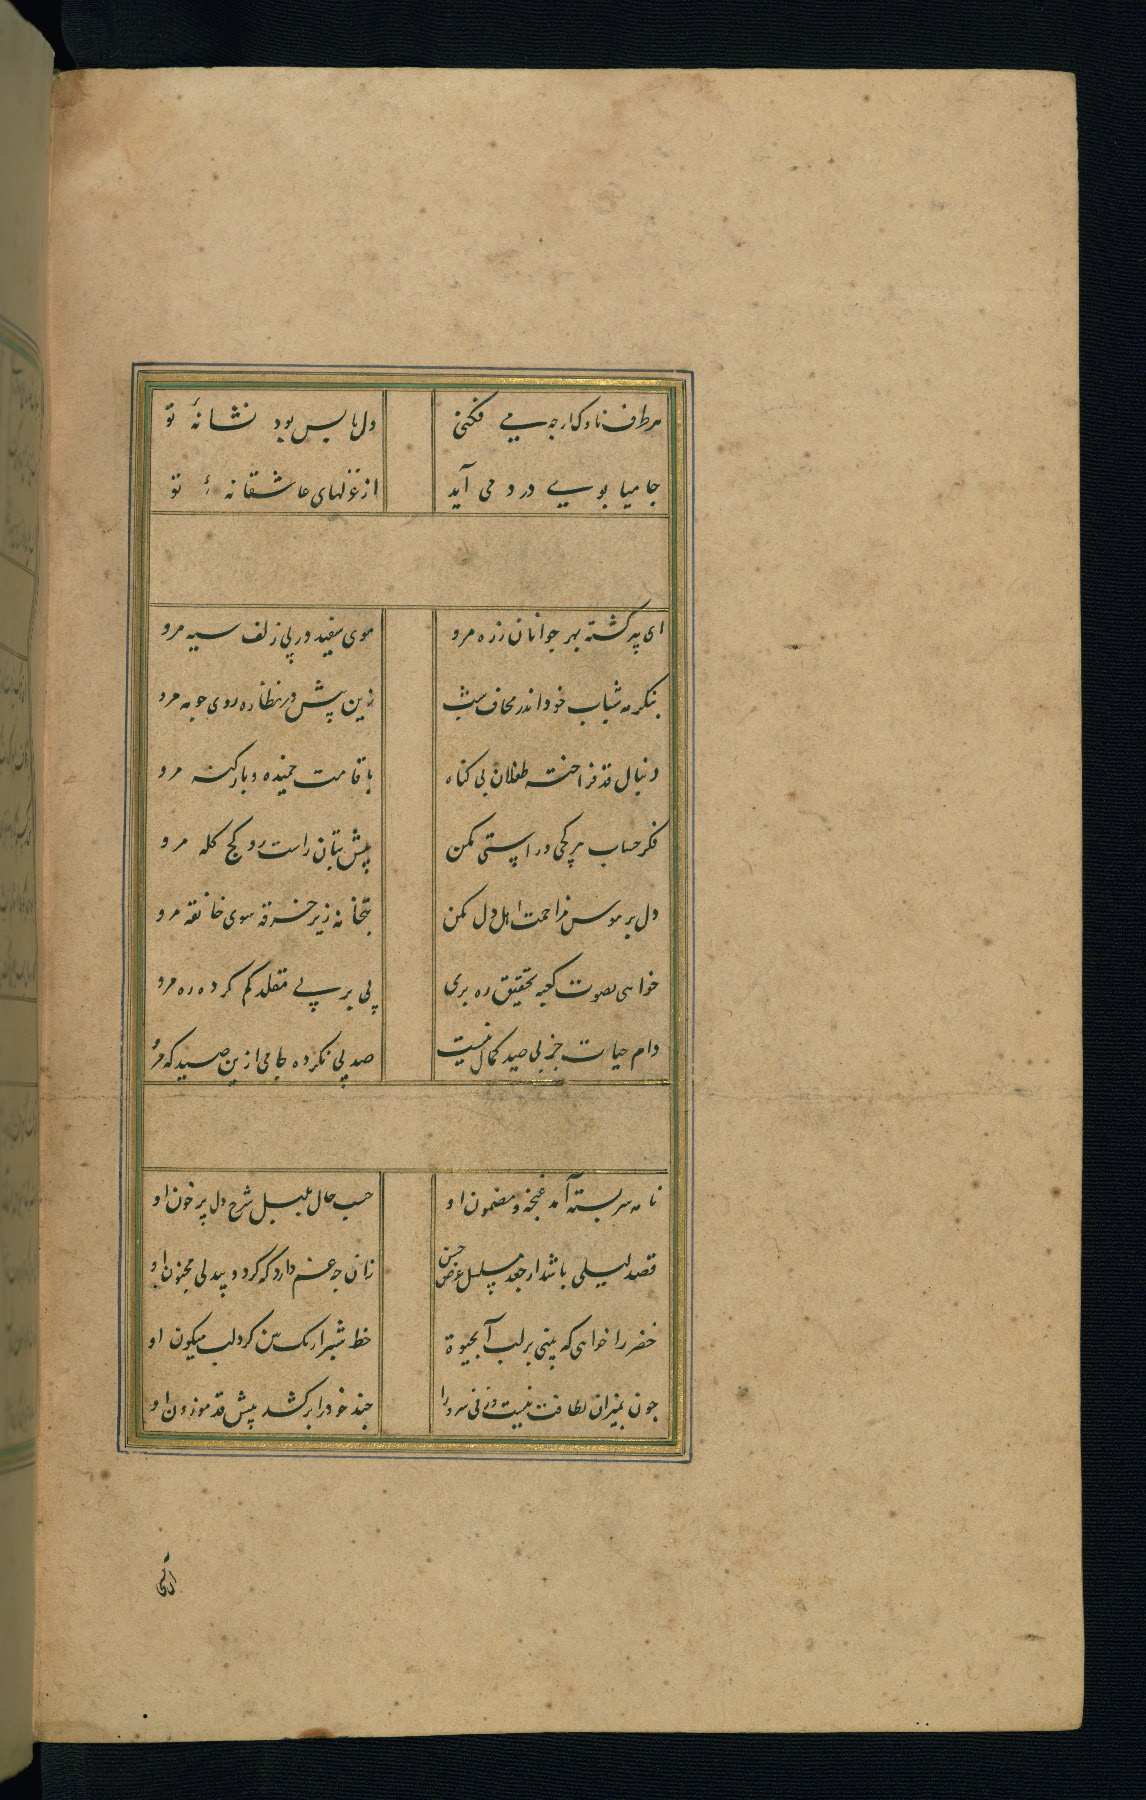 هر طرف ناوک ار چه می فکنی دل ما بس بود نشانهٔ تو
جامیا بوی درد می آید از غزلهای عاشقانهٔ تو
ای پیر گشته بهر جوانان ز ره مرو موی سفید در پی زلف سیه مرو
بنکر مه شباب خود اندر محاف شیب زین پیش در نظاره روی چو مه مرو
دنبال قد فراخته طفلان بی کناه با قامت خمیده و بار کنه مرو
فکر حساب هر کجی در راستی بکن پیش بتان راست رو کج کله مرو
دل پر هوس مزاحمت اهل دل مکن بتخانه زیر خرقه سوی خانقه مرو
خواهی بصوت کعبه تحقیق ره بری پی بر پی مقلد کم کرده ره مرو
دام حیات جز پی صید کمال نیست صیدی نکرده جامی ازین صیدکه مرو
نامه سربسته آمد غنچه و مضمون او حسب حال بلبل شرح دل پر خون او
قصد لیلی باشد از جعد مسلسل عرض حسن زان چه غم دارد که کردد بیدلی مجنون او
خضر را خواهی که بینی بر لب آبحیوة خط شبرنک بین کرد لب میکون او
چون بمیزان لطافت نیست وزنی سرو را چند خود را برکشد پیش قد موزون او